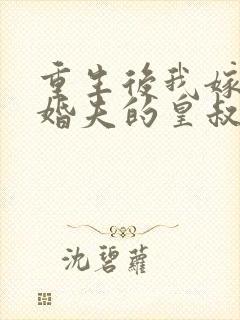 重生後我嫁
婚夫的皇叔
沈碧蘿